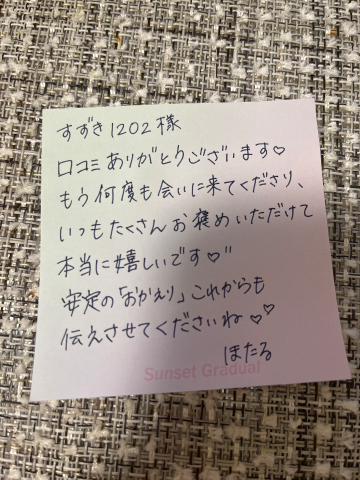 すずき1202様
口コミありがとうございます♡
もう何度も会いに来てくださり、
いつもたくさんお褒めいただけて
本当に嬉しいです♡"
安定の「おかえり」これからも
伝えさせてくださいね♡♡
ほたる
Sunset Gradual